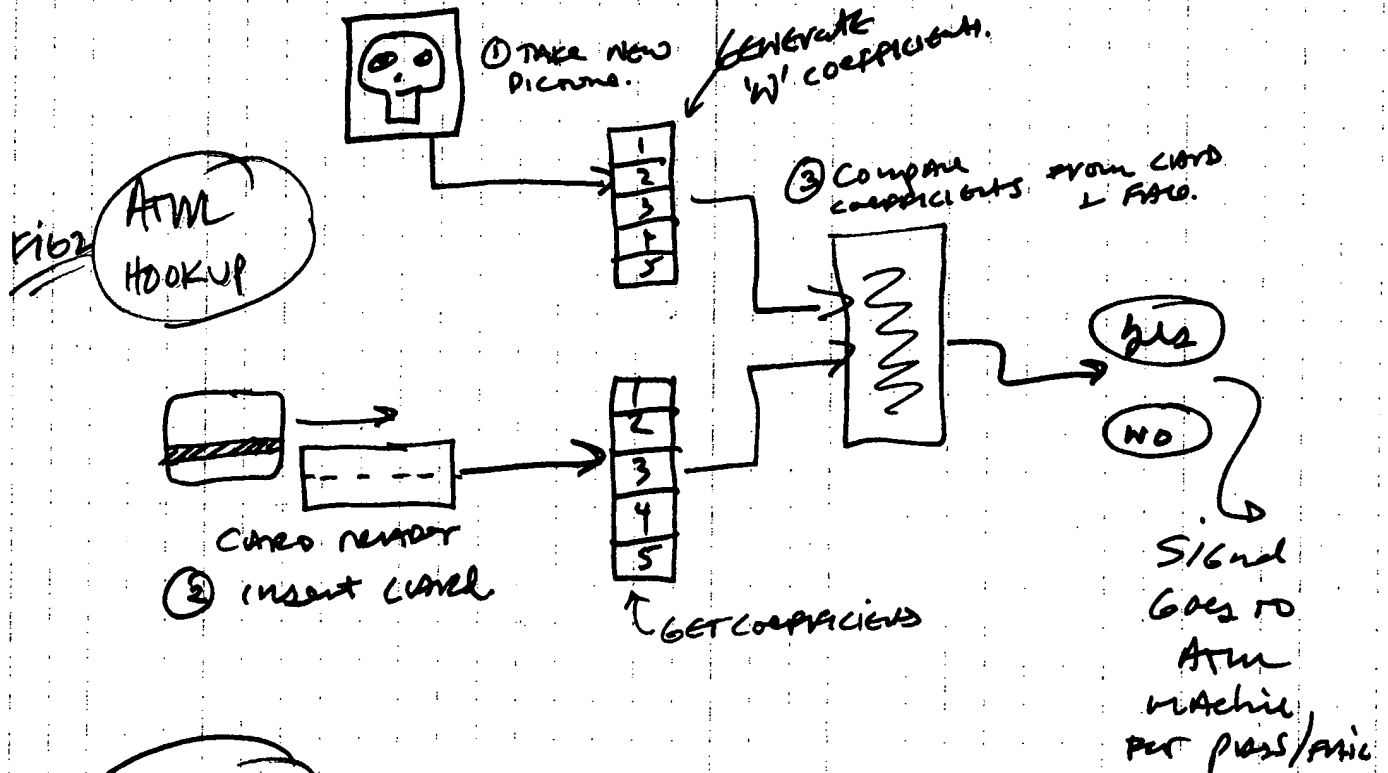 ① TAKE NEW
PICTURE.
GENERATE
'W' COEFFICIENTS.
1
2
3
4
5
③ COMPARE
COEFFICIENTS FROM CARD
& FACE.
FIG2
ATM
HOOKUP
yes
NO
CARD READER
② INSERT CARD
1
2
3
4
5
GET COEFFICIENTS
SIGNAL
GOES TO
ATM
MACHINE
FOR PASS/FAIL